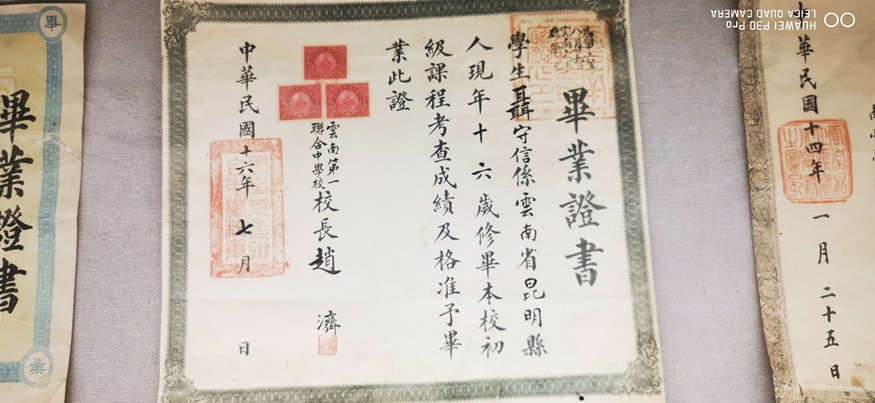 畢業證書
學生聶守信係雲南省昆明縣
人現年十六歲修畢本校初
級課程考查成績及格准予畢
業此證
雲南第一
聯合中學校
校長趙濟
中華民國十六年七月 日
華民國十四年 一月二十五日
畢
畢業證書
業
HUAWEI P30 Pro
LEICA QUAD CAMERA